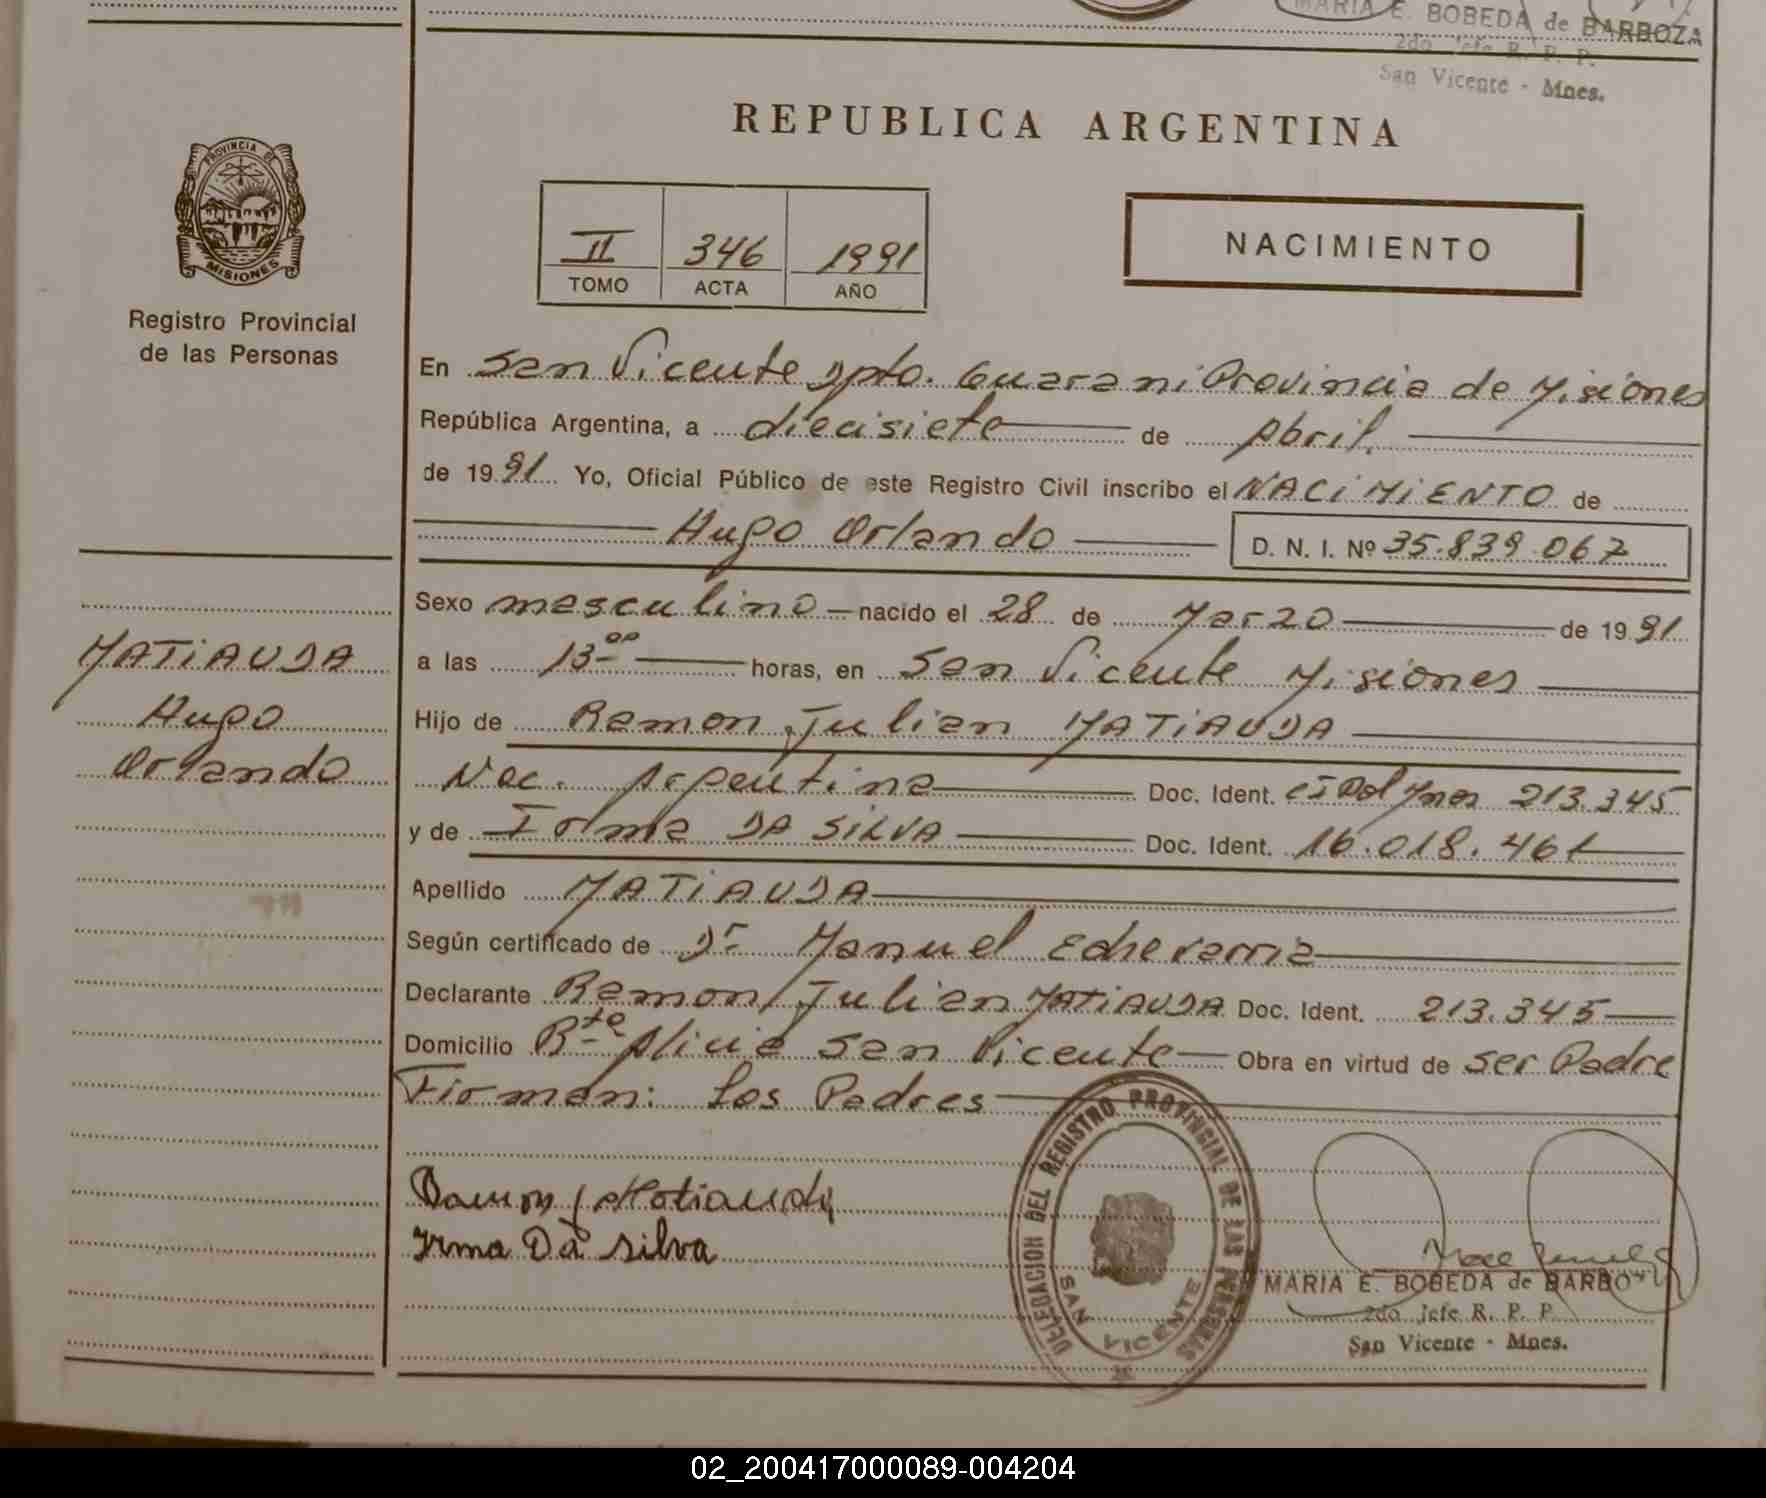 MARIA E. BOBEDA de BARBOZA
2do. Jefe R. P. P.
San Vicente - Mnes.
PROVINCIA DE
MISIONES
Registro Provincial
de las Personas
REPUBLICA ARGENTINA
II 346 1991
TOMO ACTA AÑO
NACIMIENTO
En San Vicente Dpto. Guarani Provincia de Misiones
República Argentina, a diecisiete de Abril.
de 1991 Yo, Oficial Público de este Registro Civil inscribo el NACIMIENTO de
Hugo Orlando D. N. I. Nº 35.839.067
Sexo masculino nacido el 28 de Marzo de 1991
a las 13 00 horas, en San Vicente Misiones
Hijo de Ramon Julian MATIAUDA
Nac. Argentina Doc. Ident. CI Pol Mnes 213.345
y de Irma DA SILVA Doc. Ident. 16.018.461
Apellido MATIAUDA
Según certificado de Dr Manuel Echevarria
Declarante Ramon Julian MATIAUDA Doc. Ident. 213.345
Domicilio San Vicente Obra en virtud de ser Padre
Firman: Los Padres
MATIAUDA
Hugo
Orlando
Ramon J Matiauda
Irma Da Silva
DELEGACION DEL REGISTRO PROVINCIAL DE LAS PERSONAS
SAN VICENTE
MARIA E. BOBEDA de BARBO
2do. Jefe R. P. P.
San Vicente - Mnes.
02_200417000089-004204